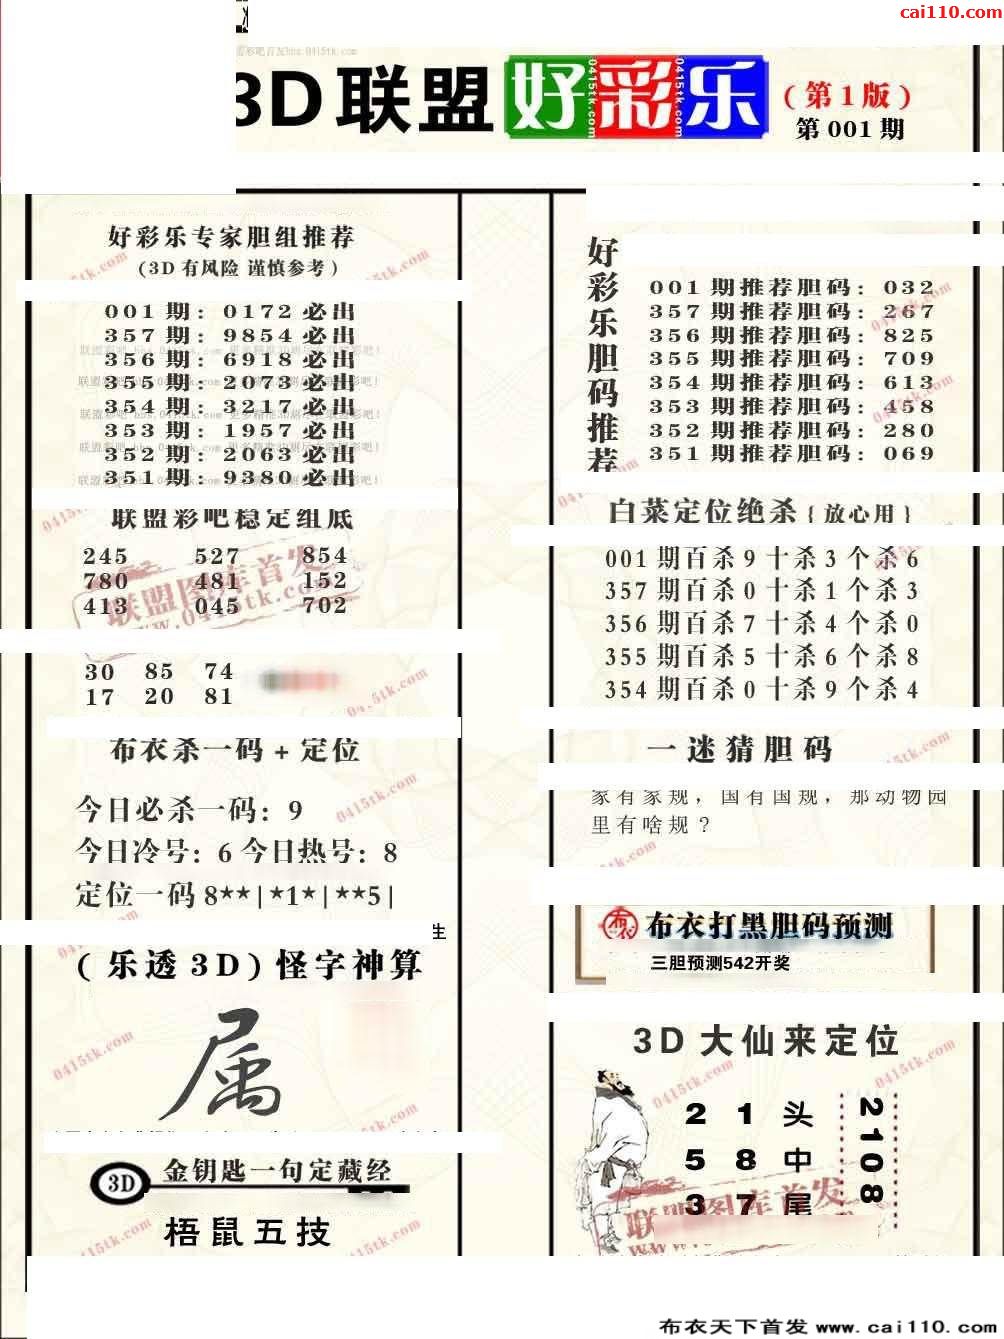 cai110.com
3D联盟 好彩乐 (第1版)
第001期
好彩乐专家胆组推荐
(3D有风险 谨慎参考)
001期: 0172必出
357期: 9854必出
356期: 6918必出
354期: 3217必出
353期: 1957必出
352期: 2063必出
351期: 9380必出
联盟彩吧稳定组底
245 527 854
780 481 152
413 045 702
30 85 74
17 20 81
布衣杀一码+定位
今日必杀一码: 9
今日冷号: 6 今日热号: 8
定位一码 8**|*1*|**5|
生
(乐透3D)怪字神算
属
3D 金钥匙一句定藏经
梧鼠五技
好彩乐胆码推荐
001期推荐胆码: 032
357期推荐胆码: 267
356期推荐胆码: 825
355期推荐胆码: 709
354期推荐胆码: 613
353期推荐胆码: 458
352期推荐胆码: 280
351期推荐胆码: 069
白菜定位绝杀{放心用}
001期百杀9十杀3个杀6
357期百杀0十杀1个杀3
356期百杀7十杀4个杀0
355期百杀5十杀6个杀8
354期百杀0十杀9个杀4
一迷猜胆码
家有家规，国有国规，那动物园
里有啥规？
布衣 布衣打黑胆码预测
三胆预测542开奖
3D大仙来定位
2 1 头
5 8 中
3 7 尾
2108
联盟图库首发
0415tk.com
布衣天下首发 www.cai110.com